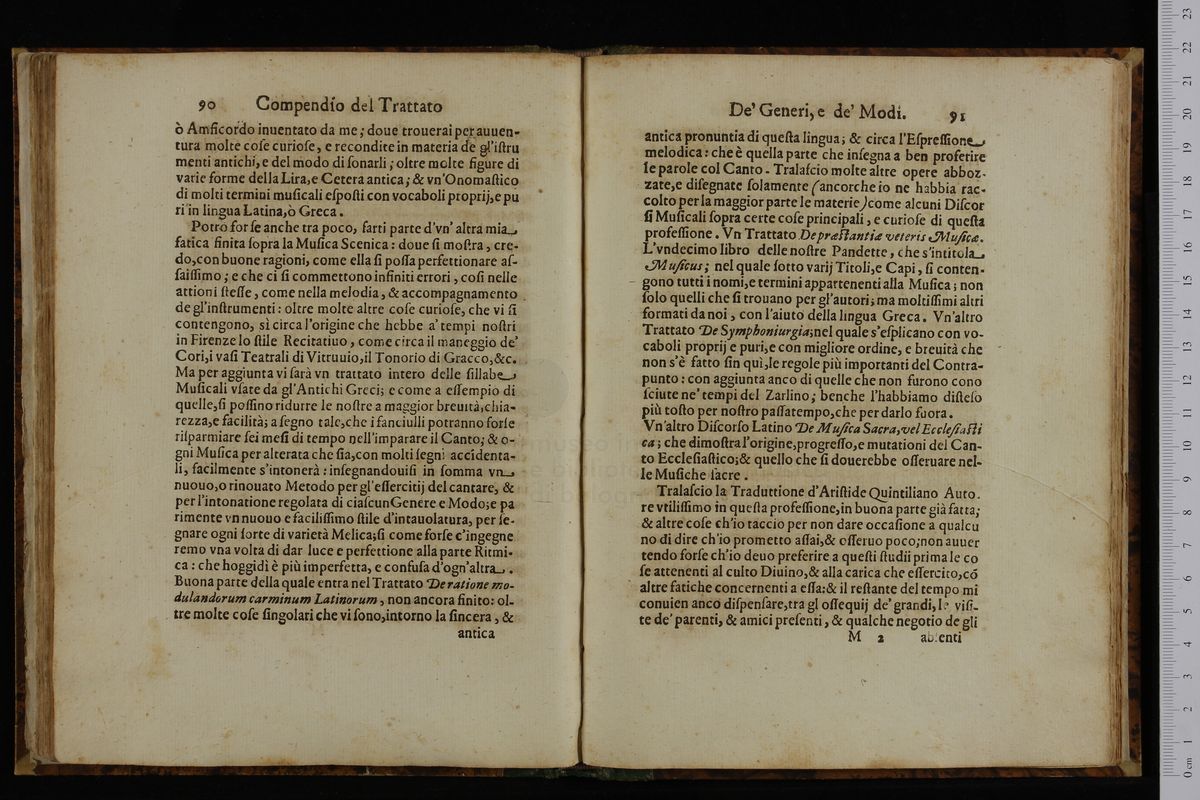 90 Compendio del Trattato
ò Amficordo inuentato da me; doue trouerai per auuen-
tura molte coſe curioſe, e recondite in materia de gl'iſtru
menti antichi, e del modo di ſonarli; oltre molte figure di
varie forme della Lira,e Cetera antica; & vn'Onomaſtico
di molti termini muſicali eſpoſti con vocaboli proprij,e pu
ri in lingua Latina,ò Greca.
Potrò forſe anche tra poco, farti parte d'vn' altra mia
fatica finita ſopra la Muſica Scenica: doue ſi moſtra, cre-
do,con buone ragioni, come ella ſi poſſa perfettionare aſ-
ſaiſſimo; e che ci ſi commettono infiniti errori, coſi nelle
attioni ſteſſe, come nella melodia, & accompagnamento
de gl'inſtrumenti: oltre molte altre coſe curioſe, che vi ſi
contengono, sì circa l'origine che hebbe a' tempi noſtri
in Firenze lo ſtile Recitatiuo, come circa il maneggio de'
Cori,i vaſi Teatrali di Vitruuio,il Tonorio di Gracco,&c.
Ma per aggiunta vi ſarà vn trattato intero delle ſillabe
Muſicali vſate da gl'Antichi Greci; e come a eſſempio di
quelle,ſi poſſino ridurre le noſtre a maggior breuità,chia-
rezza,e facilità; a ſegno tale,che i fanciulli potranno forſe
riſparmiare ſei meſi di tempo nell'imparare il Canto; & o-
gni Muſica per alterata che ſia,con molti ſegni accidenta-
li, facilmente s'intonerà: inſegnandouiſi in ſomma vn
nuouo,o rinouato Metodo per gl'eſſercitij del cantare, &
per l'intonatione regolata di ciaſcunGenere e Modo;e pa
rimente vn nuouo e faciliſſimo ſtile d'intauolatura, per ſe-
gnare ogni ſorte di varietà Melica;ſi come forſe c'ingegne
remo vna volta di dar luce e perfettione alla parte Ritmi-
ca: che hoggidì è più imperfetta, e confuſa d'ogn'altra.
Buona parte della quale entra nel Trattato De ratione mo-
dulandorum carminum Latinorum, non ancora finito: ol-
tre molte coſe ſingolari che vi ſono,intorno la ſincera, &
antica
De' Generi, e de' Modi. 91
antica pronuntia di queſta lingua; & circa l'Eſpreſſione
melodica: che è quella parte che inſegna a ben proferire
le parole col Canto. Tralaſcio molte altre opere abboz-
zate,e diſegnate ſolamente (ancorche io ne habbia rac-
colto per la maggior parte le materie)come alcuni Diſcor
ſi Muſicali ſopra certe coſe principali, e curioſe di queſta
profeſſione. Vn Trattato De præſtantia veteris Muſicæ.
L'vndecimo libro delle noſtre Pandette, che s'intitola
Muſicus; nel quale ſotto varij Titoli,e Capi, ſi conten-
gono tutti i nomi,e termini appartenenti alla Muſica; non
ſolo quelli che ſi trouano per gl'autori; ma moltiſſimi altri
formati da noi, con l'aiuto della lingua Greca. Vn'altro
Trattato De Symphoniurgia;nel quale s'eſplicano con vo-
caboli proprij e puri,e con migliore ordine, e breuità che
non s'è fatto ſin quì,le regole più importanti del Contra-
punto: con aggiunta anco di quelle che non furono cono
ſciute ne' tempi del Zarlino; benche l'habbiamo diſteſo
più toſto per noſtro paſſatempo,che per darlo fuora.
Vn'altro Diſcorſo Latino De Muſica Sacra,vel Eccleſiaſti
ca; che dimoſtra l'origine,progreſſo,e mutationi del Can-
to Eccleſiaſtico;& quello che ſi douerebbe oſſeruare nel-
le Muſiche ſacre.
Tralaſcio la Traduttione d'Ariſtide Quintiliano Auto.
re vtiliſſimo in queſta profeſſione,in buona parte già fatta;
& altre coſe ch'io taccio per non dare occaſione a qualcu
no di dire ch'io prometto aſſai,& oſſeruo poco;non auuer
tendo forſe ch'io deuo preferire a queſti ſtudii prima le co
ſe attenenti al culto Diuino,& alla carica che eſſercito,cõ
altre fatiche concernenti a eſſa:& il reſtante del tempo mi
conuien anco diſpenſare,tra gl oſſequij de' grandi, le viſi-
te de' parenti, & amici preſenti, & qualche negotio de gli
M 2 abſenti